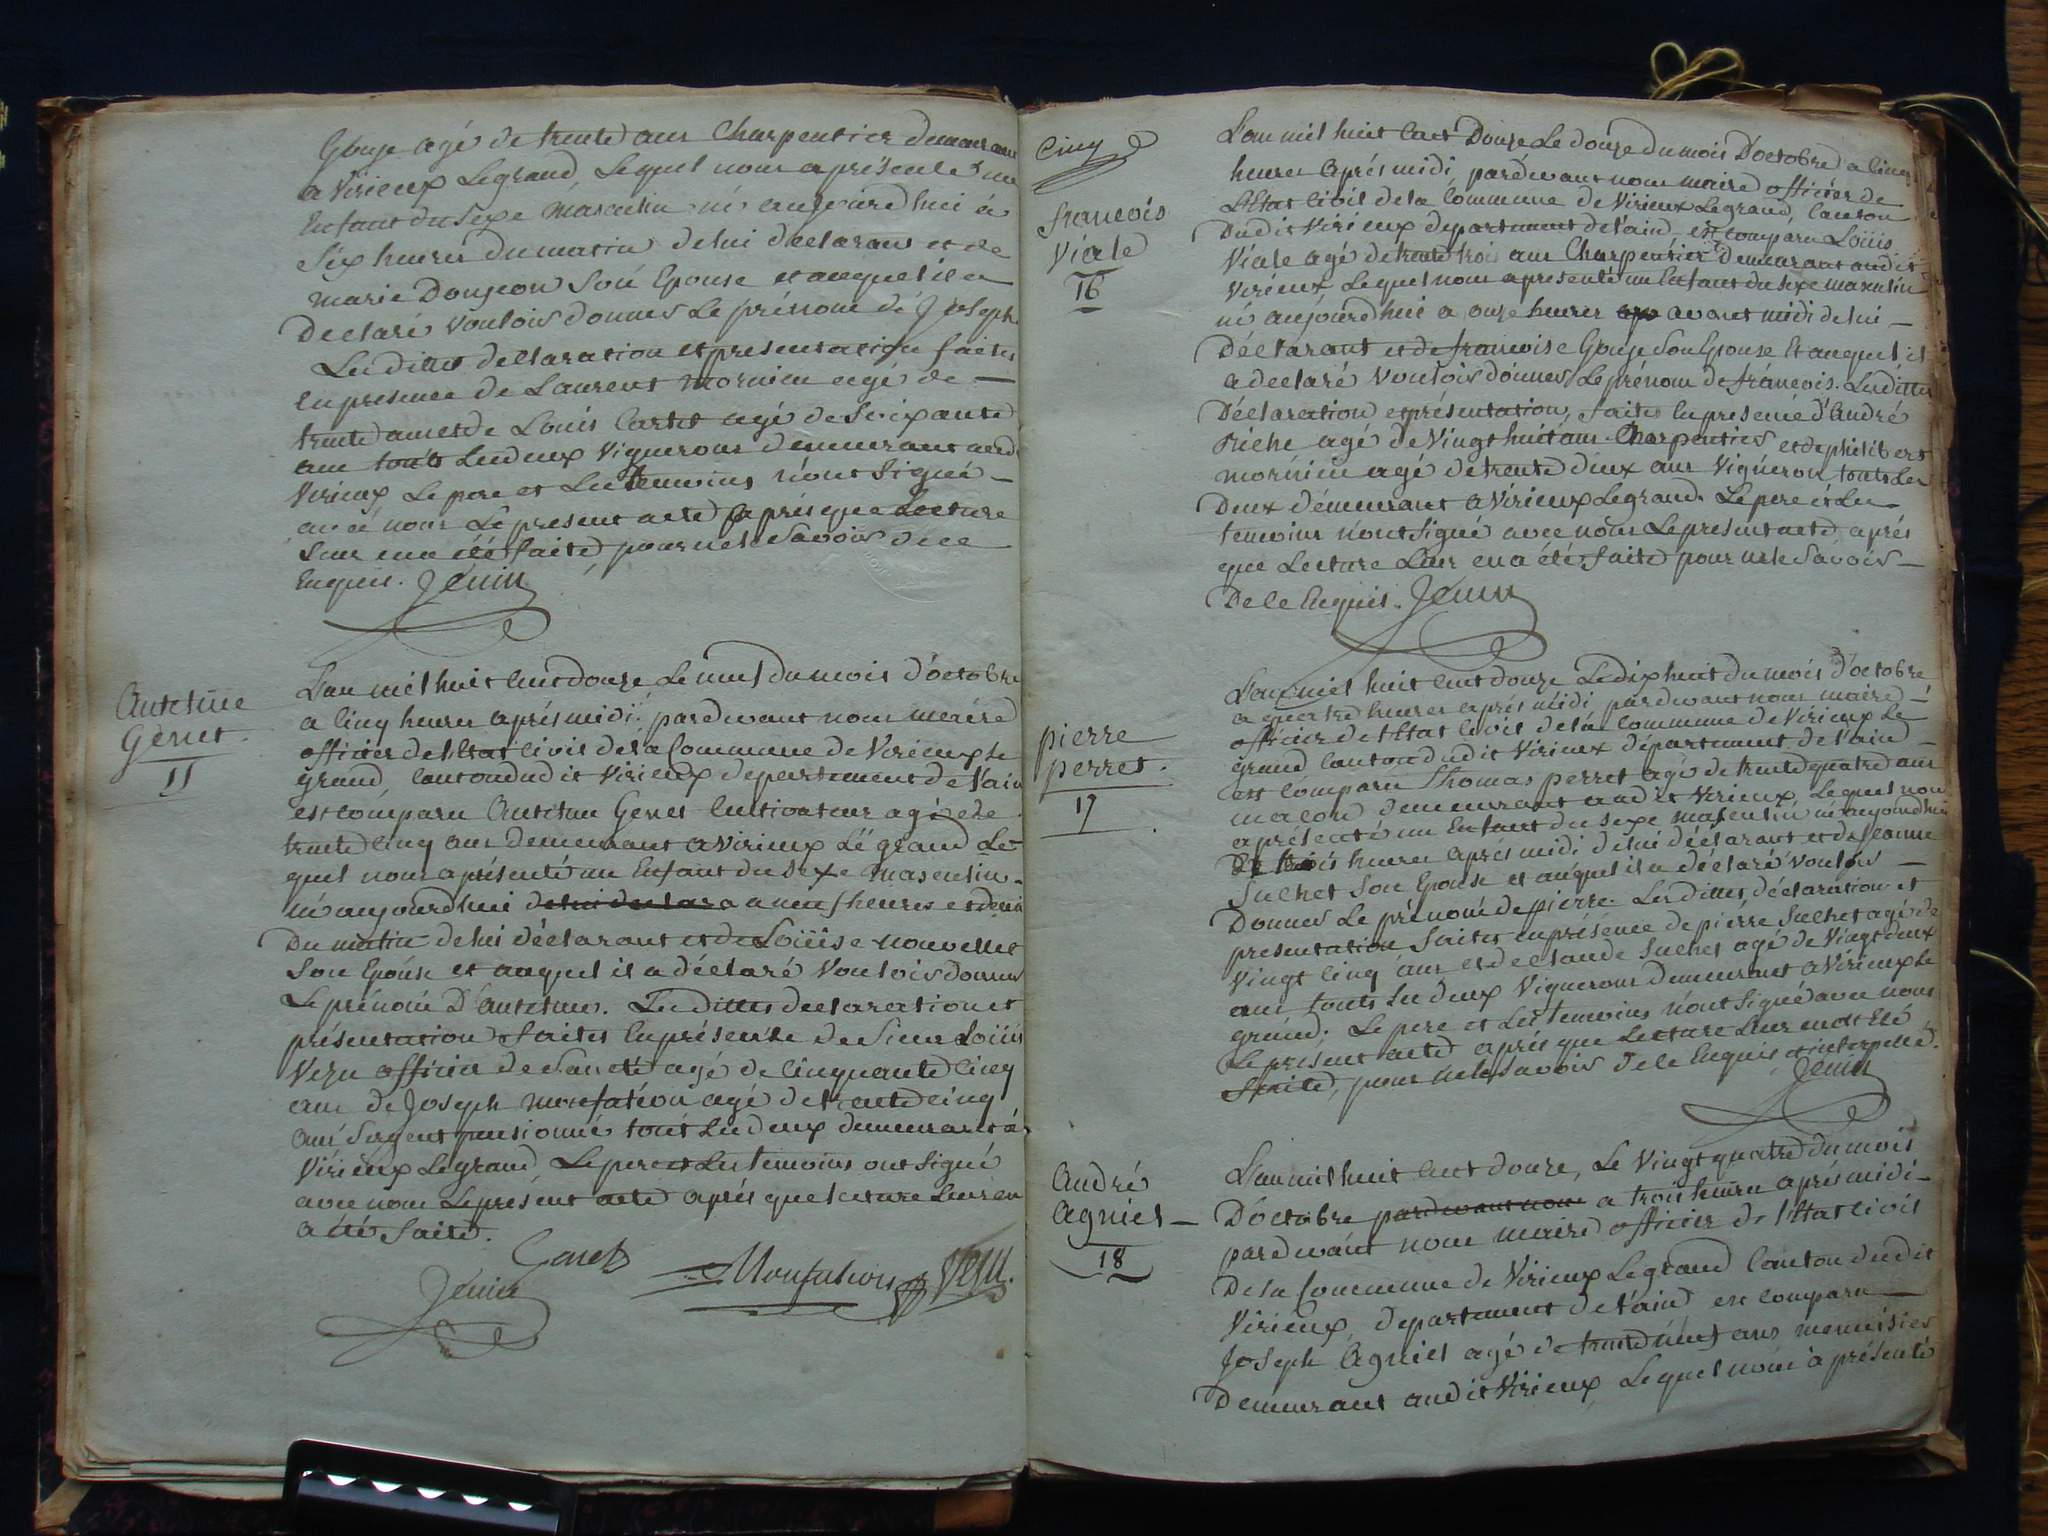 Gouje agé de trente ans Charpentier demeurant
a Virieux Legrand, Lequel nous a présenté un
Enfant du Sexe masculin né aujourd'hui à
Six heures du matin de lui déclarant et de
marie Donjeon Son Epouse et auquel il a
Declaré Vouloir donner Le prénom de Joseph
Les dittes declaration et presentation faites
En presence de Laurent mornieu agé de —
trente ans et de Louis Cartet agé de Soixante
ans touts Les deux Vignerons demeurant aud
Virieux, Le pere et Les temoins n'ont Signé —
avec nous Le present acte après que Lecture
Leur en a été faite, pour ne le Savoir de ce
Enquis. Jenin
Antelme
Genet.
11
L'an mil huit cent douze Le neuf du mois d'octobre
a Cinq heures après midi, pardevant nous maire
officier de l'Etat Civil de la Commune de Virieux le
grand, Canton dudit Virieux departement de l'ain
est comparu Antelme Genet Cultivateur agé de
trente Cinq ans demeurant a Virieux Le grand Le
quel nous a présenté un Enfant du Sexe masculin
né aujourd'hui de lui declara a neuf heures et demi
Du matin de lui déclarant et de Loüise nouvellet
Son Epouse et auquel il a déclaré Vouloir donner
Le prénom D'antelme. Les dittes declaration et
présentation faites En présence de Sieur Loüis
Vezu officier de Santé agé de Cinquante Cinq
ans de Joseph monfalcon agé de trente cinq
ans Sergent pensionné touts Les deux demeurant à
Virieux Legrand Le pere et Les temoins ont Signé
avec nous Le présent acte après que lecture Leur en
a été faite.
Genet
Jenin
Monfalcon
Vezu.
Cinq
francois
Viale
16
L'an mil huit Cent Douze Le douze du mois D'octobre a Cinq
heures Après midi, pardevant nous maire officier de
L'Etat Civil de la Commune de Virieux Legrand, Canton
Dudit Virieux departement de l'ain est comparu Loüis
Viale agé de trente trois ans Charpentier demeurant audit
Virieux Lequel nous a presenté un Enfant du Sexe masculin
né aujourd'hui a onze heures ap avant midi de lui —
Déclarant et de francoise Gouje Son Epouse Et auquel il
a declaré Vouloir donner Le prénom de francois. Les dittes
Déclaration et présentation, faites En presence d'André
Riche agé de Vingt huit ans Charpentier et de philibert
mornieu agé de trente deux ans Vigneron, touts Les
Deux demeurant a Virieux Legrand. Le pere et Les
temoins n'ont Signé avec nous Le present acte, après
que Lecture Leur en a été faite pour ne le Savoir —
De le Enquis. Jenin
pierre
perret.
17
L'an mil huit cent douze Le dix huit du mois d'octobre
a quatre heures après midi, pardevant nous maire —
officier de l'Etat Civil de la Commune de Virieux Le
grand Canton dudit Virieux département de l'ain —
est comparu Thomas perret agé de trente quatre ans
macon demeurant audit Virieux, Lequel nous
a présenté un Enfant du Sexe masculin né aujourdhui
De trois heures après midi de lui déclarant et de Jeanne
Suchet Son Epouse et auquel il a déclaré Vouloir —
Donner Le prénom de pierre. Les dittes déclaration et
presentation faites en présence de pierre Suchet agé de
Vingt Cinq ans et de Claude Suchet agé de Vingt deux
ans touts Les deux Vignerons demeurant a Virieux Le
grand; Le pere et Les temoins n'ont Signé avec nous
Le présent acte après que Lecture Leur en at Eté
faite, pour ne le Savoir de le Enquis et interpellé.
Jenin
André
Agniel —
18
L'an mil huit cent douze, Le Vingt quatre du mois
D'octobre pardevant nous a trois heures après midi —
pardevant nous maire officier de l'Etat Civil
De la Commune de Virieux Legrand Canton dudit
Virieux, departement de l'ain est comparu —
Joseph Agniel agé de trente neuf ans menuisier
Demeurant audit Virieux, Lequel nous à présenté